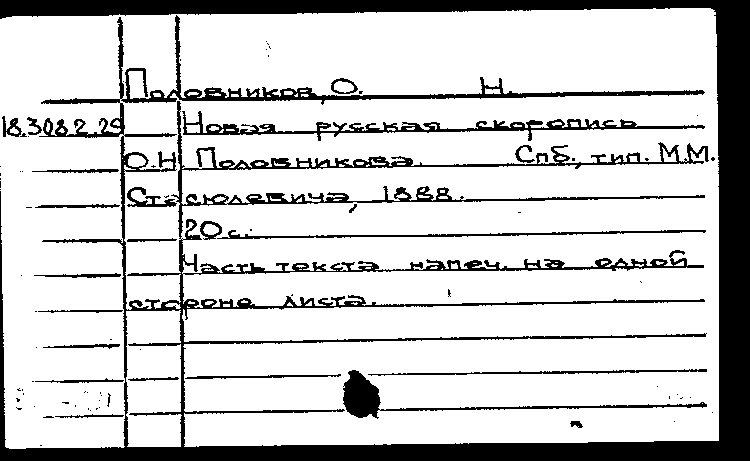 Половников, О. Н.
18.308.2.29 Новая русская скоропись
О.Н. Половникова. Спб., тип. М.М.
Стасюлевича, 1888.
20 с.
Часть текста напеч. на одной
стороне листа.